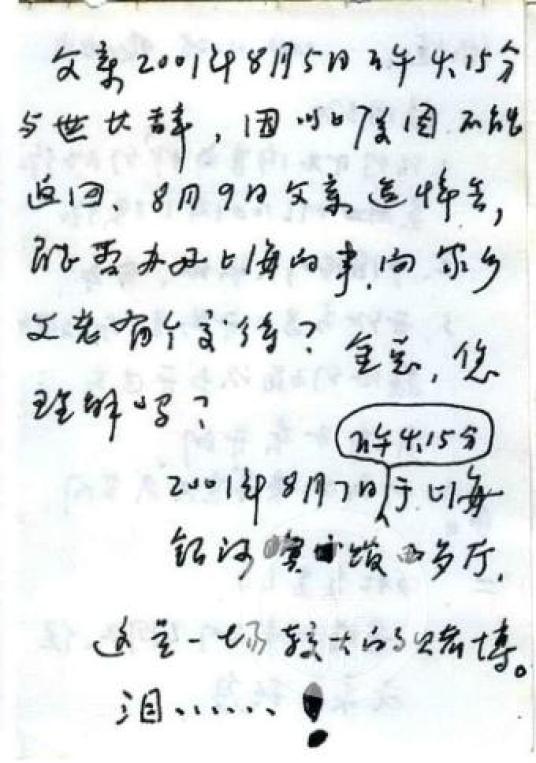 父亲2001年8月5日下午4:15分
与世长辞，因
返回，8月9日父亲追悼会，
能否办好上海的事，向家乡
父老有个交待？金总，您
理解吗？
下午4:15分
2001年8月7日于上海
银河宾馆 歌厅，
这是一场较大的赌博。
泪……！